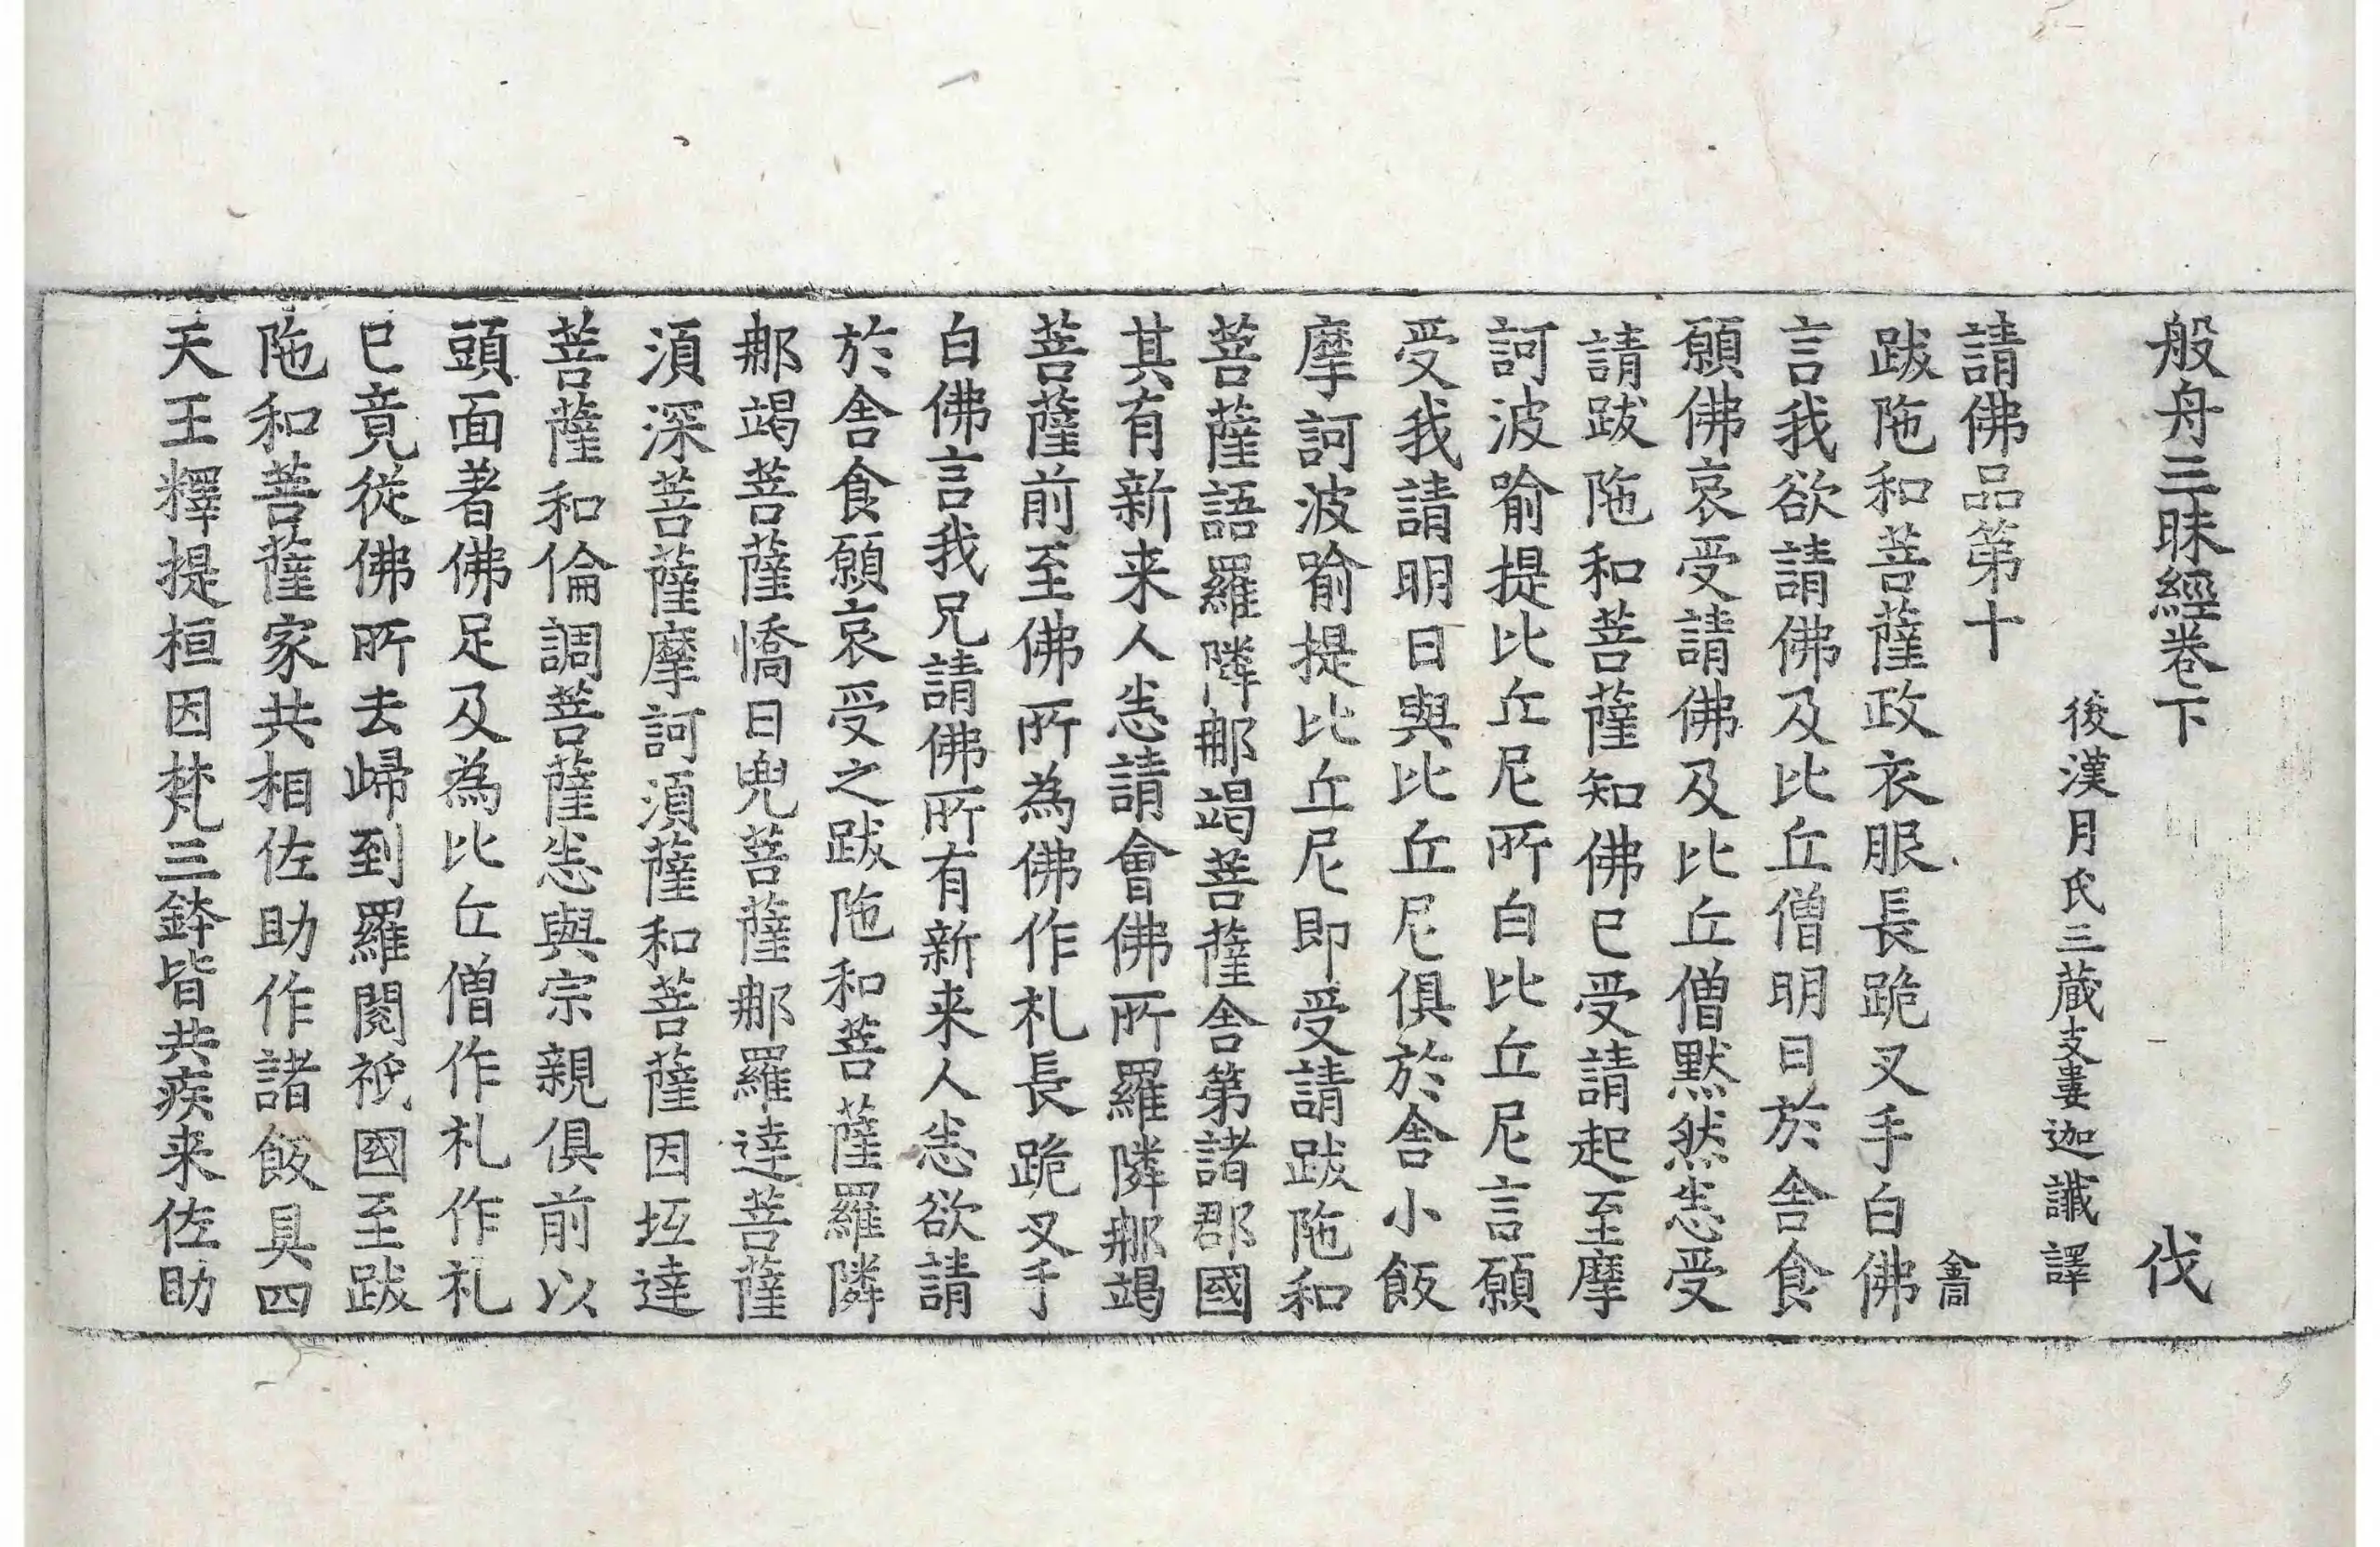 般舟三昧經卷下 伐
後漢月氏三蔵支婁迦讖譯
請佛品第十
跋陁和菩薩政衣服長跪叉手白佛
言我欲請佛及比丘僧明日於舎食
願佛哀受請佛及比丘僧黙然悉受
請跋陁和菩薩知佛已受請起至摩
訶波喻提比丘尼所白比丘尼言願
受我請明日與比丘尼俱於舎小飯
摩訶波喻提比丘尼即受請跋陁和
菩薩語羅隣那竭菩薩舎第諸郡國
其有新来人悉請會佛所羅隣那竭
菩薩前至佛所為佛作礼長跪叉手
白佛言我兄請佛所有新来人悉欲請
於舎食願哀受之跋陁和菩薩羅隣
那竭菩薩憍日兜菩薩那羅達菩薩
湏深菩薩摩訶湏薩和菩薩因坻達
菩薩和倫調菩薩悉與宗親俱前以
頭面著佛足及為比丘僧作礼作礼
已竟従佛所去歸到羅閱祇國至跋
陁和菩薩家共相佐助作諸飯具四
天王釋提桓因梵三鉢皆共疾来佐助